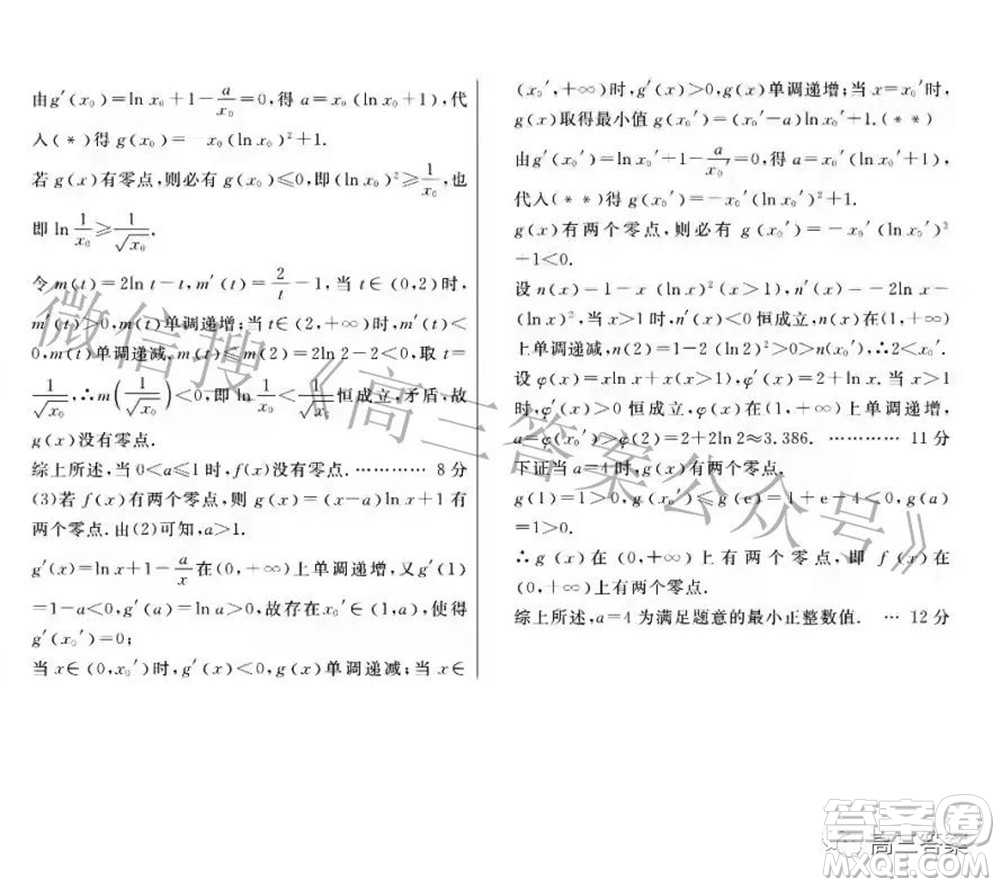 由g′(x₀)=ln x₀+1-a/x₀=0,得a=x₀(ln x₀+1),代
入(*)得g(x₀)= x₀(ln x₀)²+1.
若g(x)有零点,则必有g(x₀)≤0,即(ln x₀)²≥1/x₀,也
即ln 1/x₀≥1/√x₀.
令m(t)=2ln t-t,m′(t)=2/t-1,当t∈(0,2)时,
m′(t)>0,m(t)单调递增;当t∈(2,+∞)时,m′(t)<
0,m(t)单调递减,m(t)≤m(2)=2ln 2-2<0,取t=
1/√x₀,∴m(1/√x₀)<0,即ln 1/x₀<1/√x₀恒成立,矛盾,故
g(x)没有零点.
综上所述,当0<a≤1时,f(x)没有零点. ………… 8分
(3)若f(x)有两个零点,则g(x)=(x-a)ln x+1有
两个零点.由(2)可知,a>1.
g′(x)=ln x+1-a/x在(0,+∞)上单调递增,又g′(1)
=1-a<0,g′(a)=ln a>0,故存在x₀′∈(1,a),使得
g′(x₀′)=0;
当x∈(0,x₀′)时,g′(x)<0,g(x)单调递减;当x∈
(x₀′,+∞)时,g′(x)>0,g(x)单调递增;当x=x₀′时,
g(x)取得最小值g(x₀′)=(x₀′-a)ln x₀′+1.(**)
由g′(x₀′)=ln x₀′+1-a/x₀′=0,得a=x₀′(ln x₀′+1),
代入(**)得g(x₀′)=-x₀′(ln x₀′)²+1.
g(x)有两个零点,则必有g(x₀′)=-x₀′(ln x₀′)²
+1<0.
设n(x)=1-x(ln x)²(x>1),n′(x)=-2ln x-
(ln x)²,当x>1时,n′(x)<0恒成立,n(x)在(1,+∞)
上单调递减,n(2)=1-2(ln 2)²>0>n(x₀′),∴2<x₀′.
设φ(x)=xln x+x(x>1),φ′(x)=2+ln x,当x>1
时,φ′(x)>0恒成立,φ(x)在(1,+∞)上单调递增,
a=φ(x₀′)>φ(2)=2+2ln 2≈3.386. ………… 11分
下证当a=4时,g(x)有两个零点.
g(1)=1>0,g(x₀′)≤g(e)=1+e-4<0,g(a)
=1>0.
∴g(x)在(0,+∞)上有两个零点,即f(x)在
(0,+∞)上有两个零点.
综上所述,a=4为满足题意的最小正整数值. … 12分
微信搜《高三答案公众号》
答案卷
高三答案
MXQE.COM